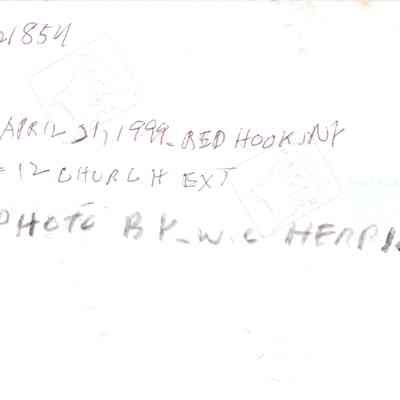 21854
APRIL 21, 1999. RED HOOK, NY
- 12 CHURCH EXT
PHOTO BY - W. C